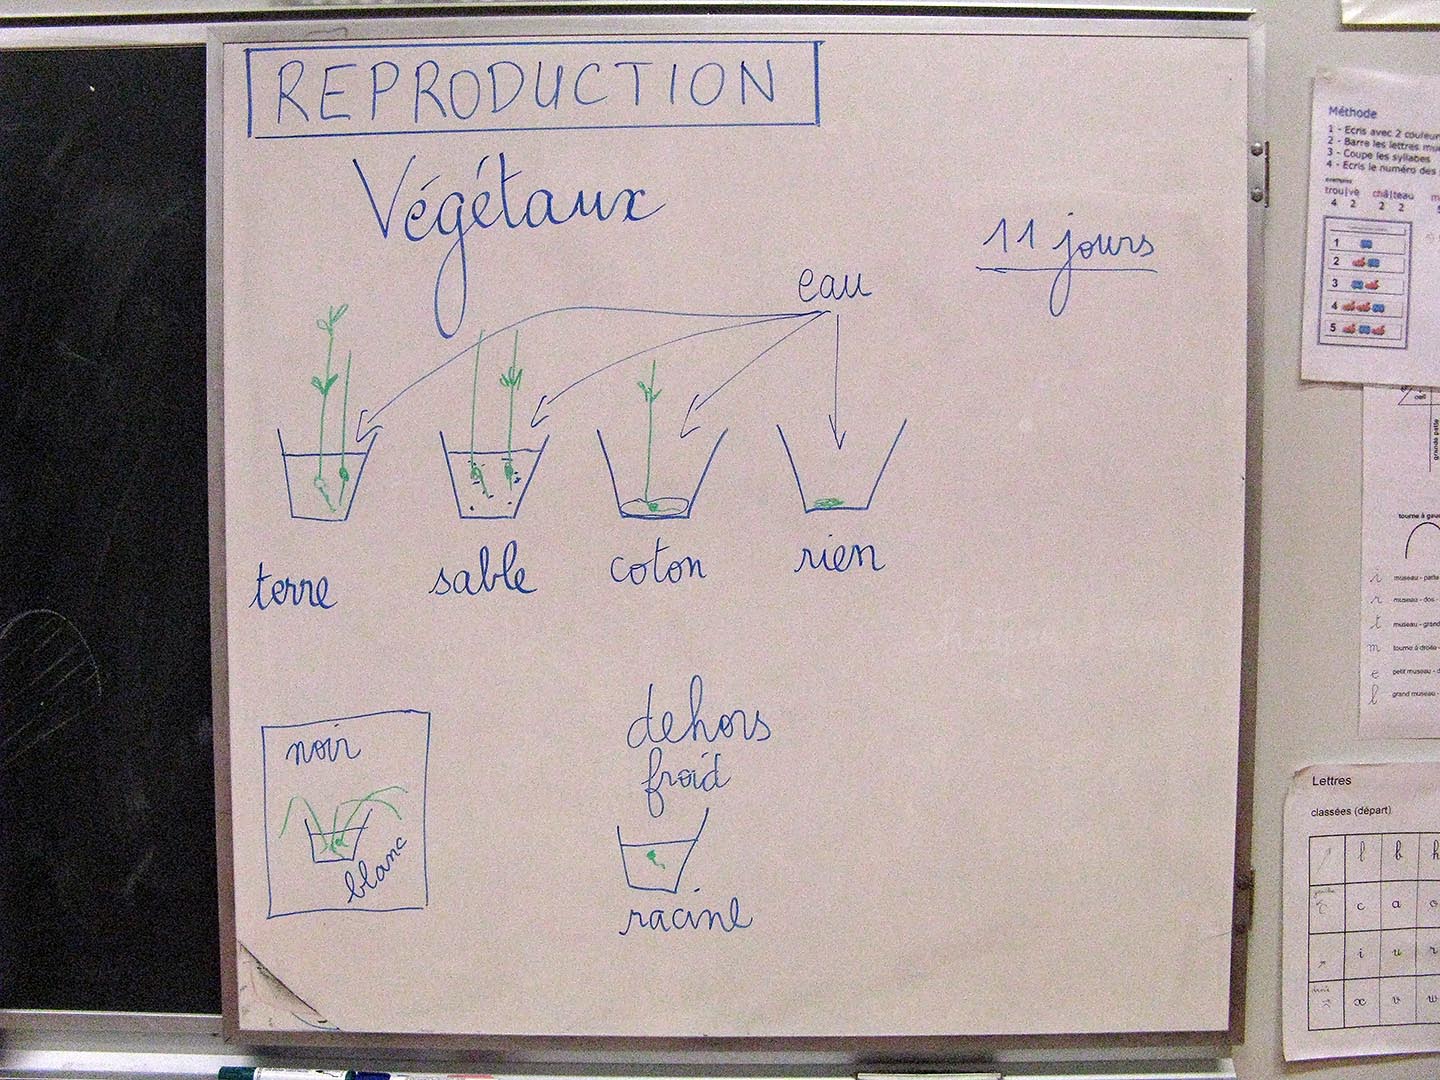 REPRODUCTION
Végétaux
11 jours
eau
terre
sable
coton
rien
noir
blanc
dehors
froid
racine
Méthode
1 - Ecris avec 2 couleur
2 - Barre les lettres mue
3 - Coupe les syllabes
4 - Ecris le numéro des
trou|vè châ|teau m
4 2 2 2
1
2
3
4
5
oeil
grande patte
tourne à gau
i museau - patte
r museau - dos -
t museau - grand
m tourne à droite -
e petit museau - d
l grand museau -
Lettres
classées (départ)
l b h
c a o
i u r
x v w